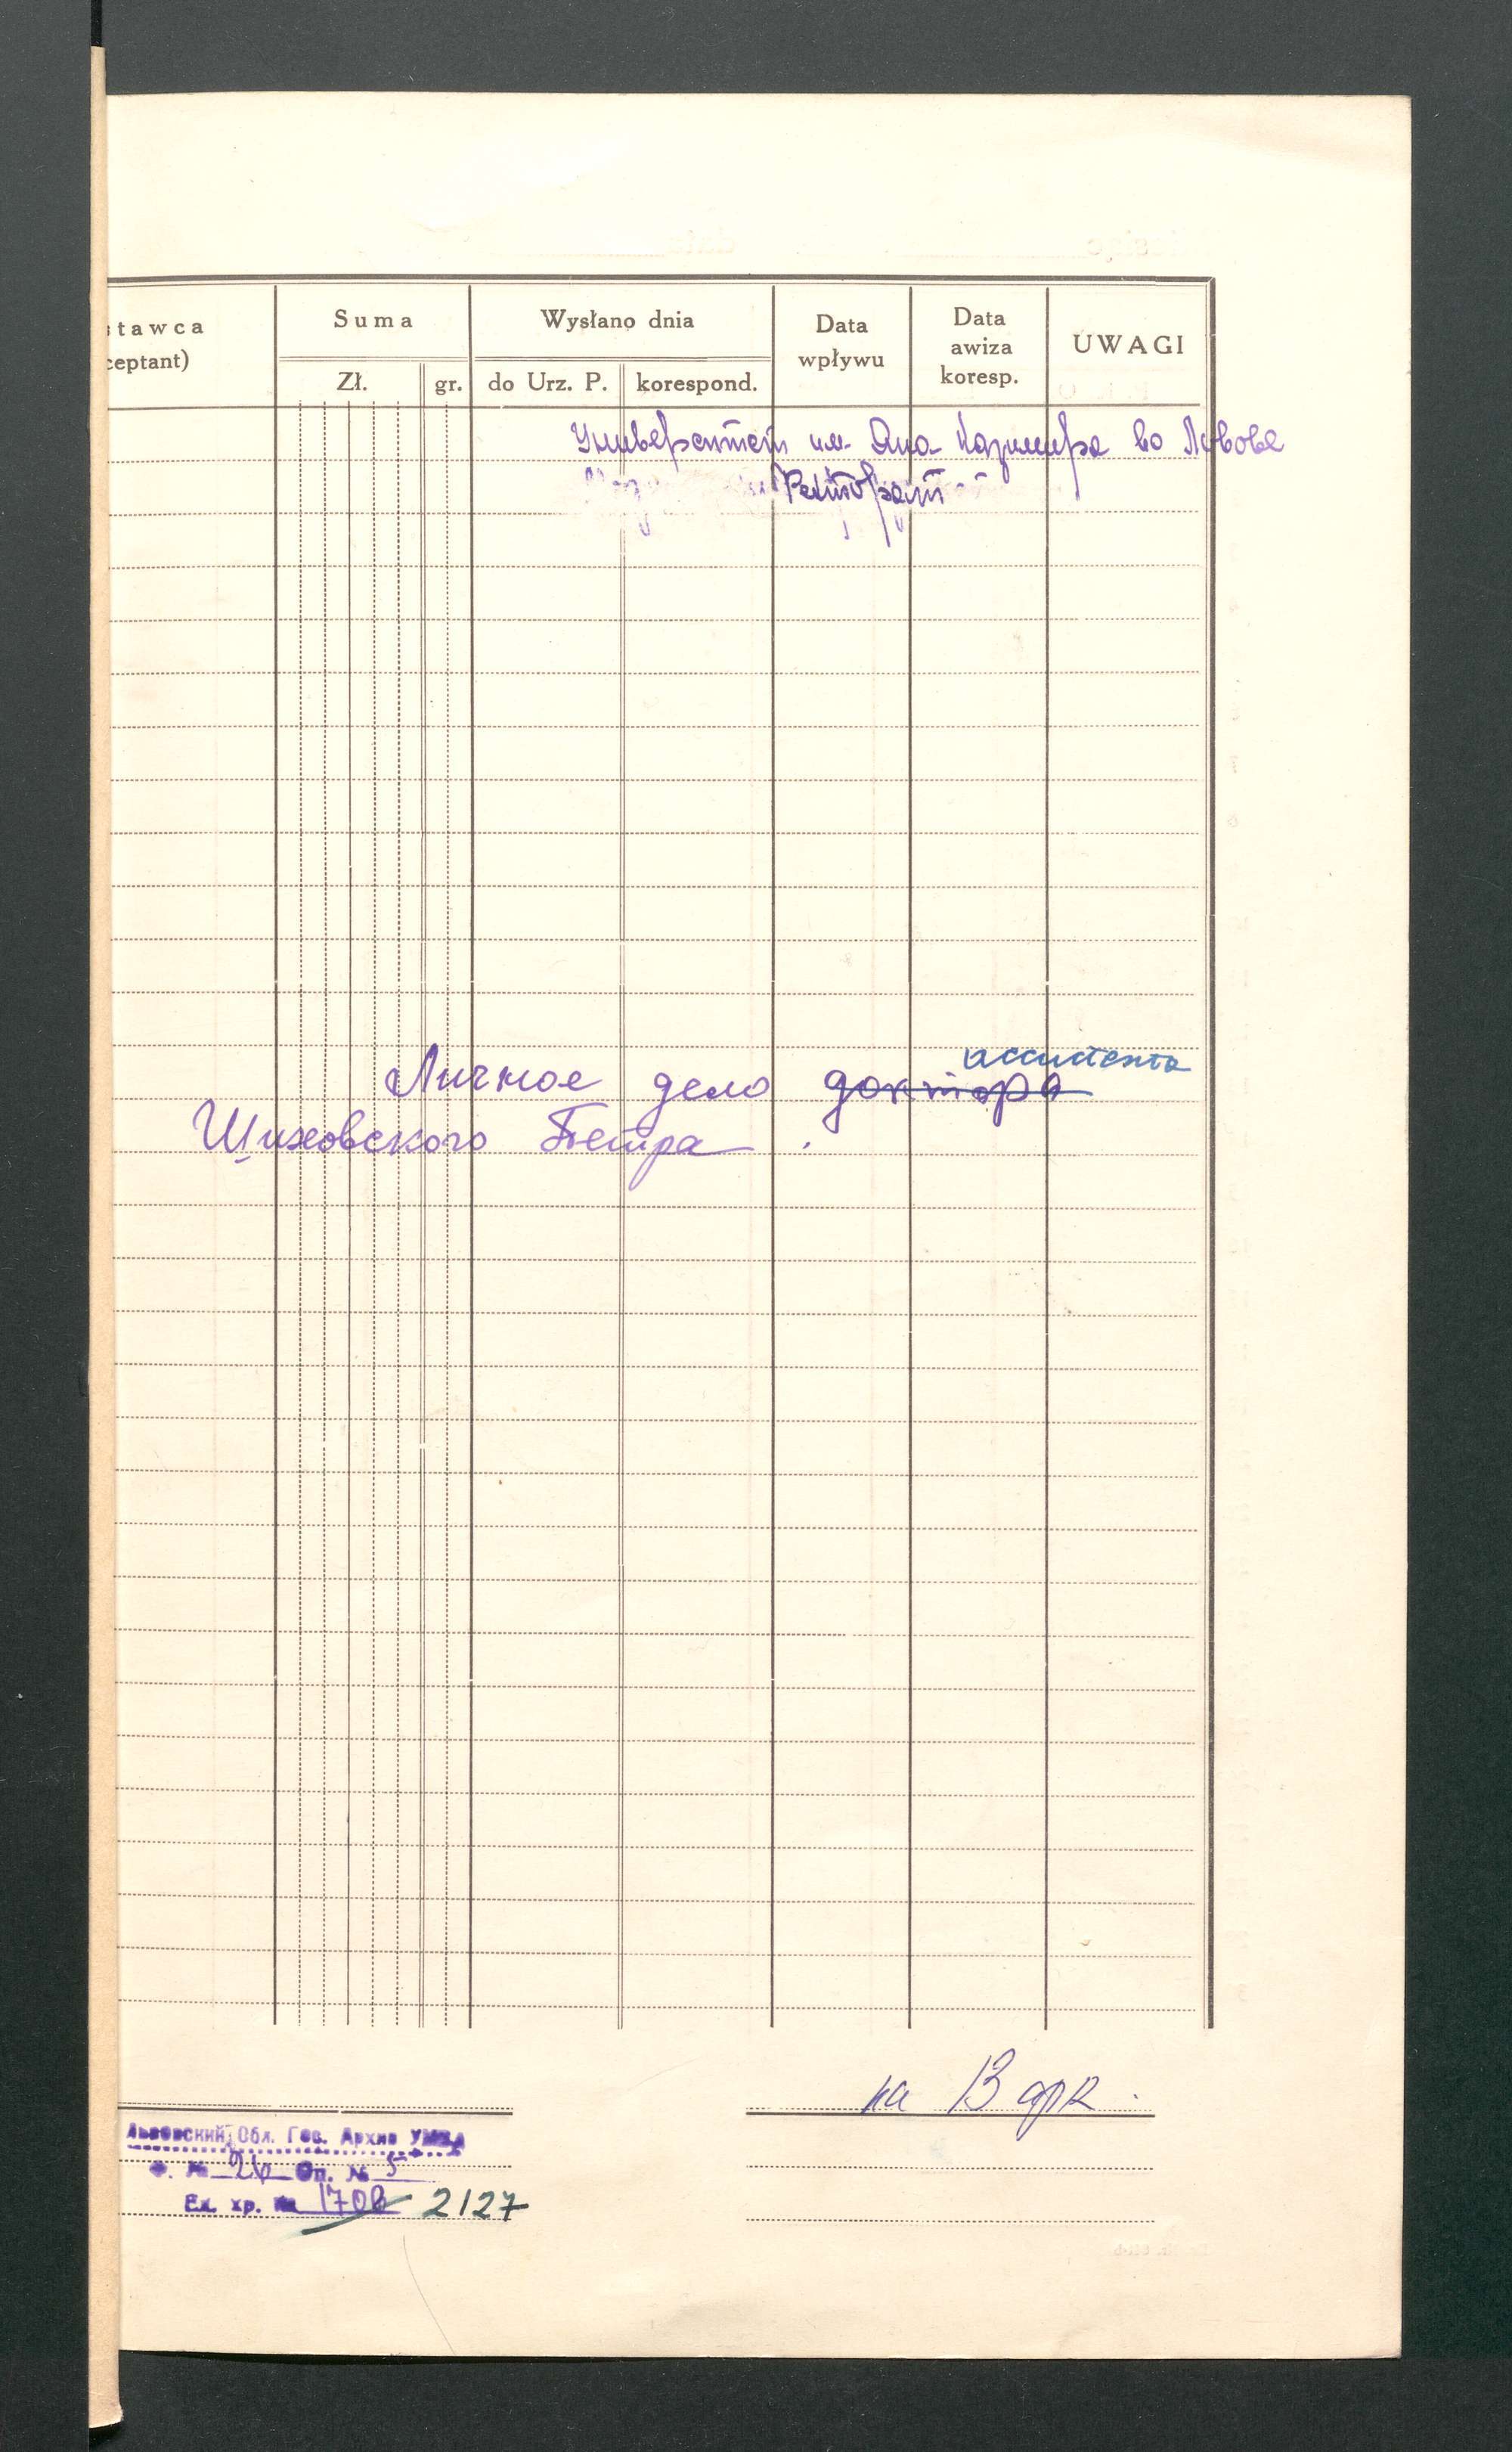 stawca Suma Wysłano dnia Data wpływu Data awiza koresp. UWAGI
ceptant) Zł. gr. do Urz. P. korespond.
Университет им. Яна Казимира во Львове
Ректорат
ассистента
Личное дело доктора
Шиховского Петра.
на 13 арк.
Львовский Обл. Гос. Архив УМВД
Ф. № 26 Оп. № 5
Ед. хр. № 1708 2127